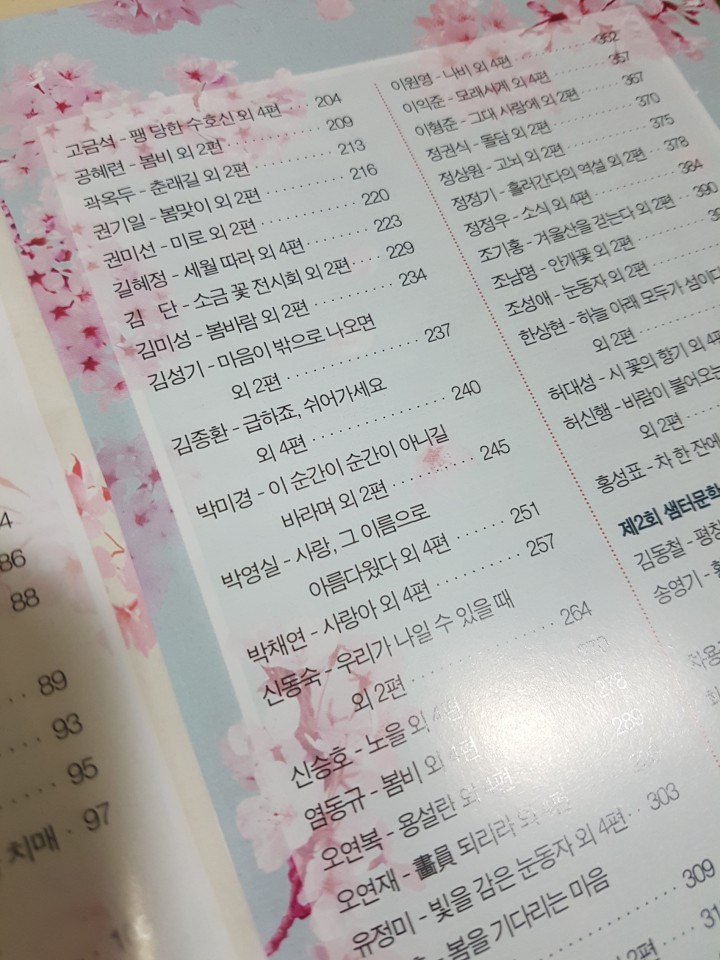 4
86
88
89
93
95
치매 · 97
고금석 - 팽 당한 수호신 외 4편 204
공혜련 - 봄비 외 2편 209
곽옥두 - 춘래길 외 2편 213
권기일 - 봄맞이 외 2편 216
권미선 - 미로 외 2편 220
길혜정 - 세월 따라 외 4편 223
김 단 - 소금 꽃 전시회 외 2편 229
김미성 - 봄바람 외 2편 234
김성기 - 마음이 밖으로 나오면
외 2편 237
김종환 - 급하죠, 쉬어가세요
외 4편 240
박미경 - 이 순간이 순간이 아니길
바라며 외 2편 245
박영실 - 사랑, 그 이름으로
아름다웠다 외 4편 251
박채연 - 사랑아 외 4편 257
신동숙 - 우리가 나일 수 있을 때
외 2편 264
신승호 - 노을 외 4편
염동규 - 봄비 외 4편 278
오연복 - 용설란 외 289
오연재 - 畫員 되리라
유정미 - 빛을 감은 눈동자 외 4편 303
- 봄을 기다리는 마음
309
2편
이원영 - 나비 외 4편 352
이익준 - 모래시계 외 4편 357
이형준 - 그대 사랑에 외 2편 367
정권식 - 돌담 외 2편 370
정상원 - 고뇌 외 2편 375
정정기 - 흘러간다의 역설 외 2편 378
정정우 - 소식 외 4편 384
조기홍 - 겨울산을 걷는다 외 2편 390
조남명 - 안개꽃 외 2편
조성애 - 눈동자 외 2편
한상현 - 하늘 아래 모두가 섬이다
외 2편
허대성 - 시 꽃의 향기 외 4편
허신행 - 바람이 불어오는
외 2편
홍성표 - 차 한 잔에
제2회 샘터문학
김동철 - 평창
송영기 -